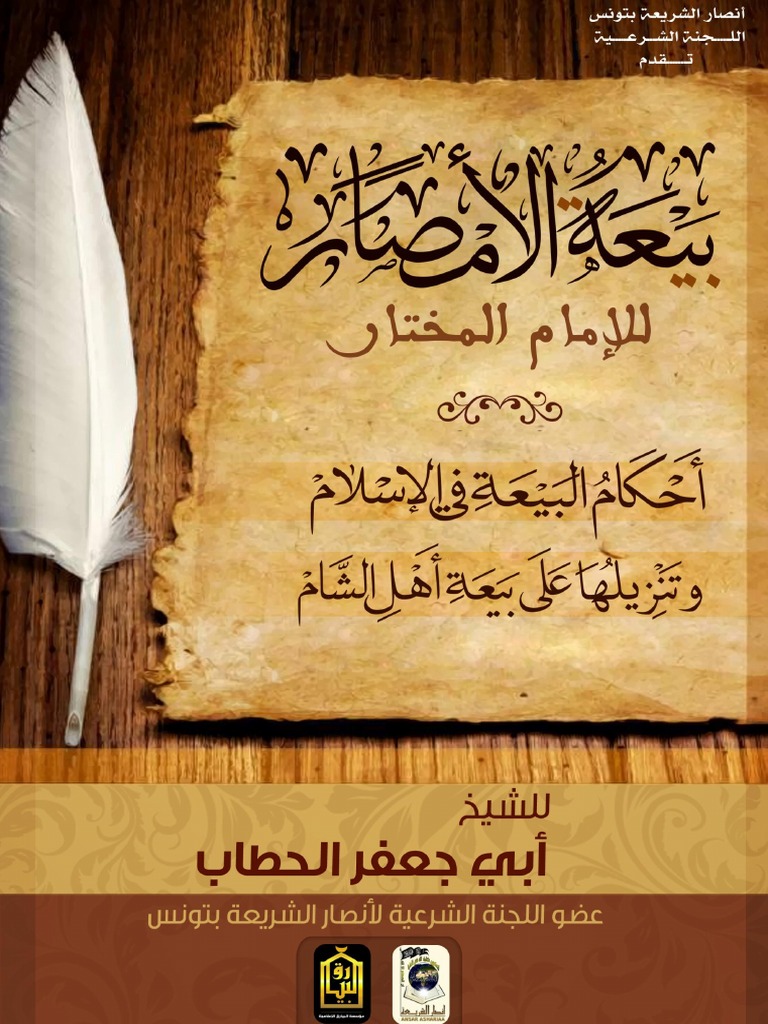 أنصار الشريعة بتونس
اللـجنة الشـرعـيـة
تـــقدم
بَيْعَةُ الأَمْصَارْ
للإمام المختار
أَحْكَامُ البَيْعَةِ في الإِسْلَامْ
وتَنْزِيلُهَا عَلَى بَيْعَةِ أَهْلِ الشَّامْ
للشيخ
أبي جعفر الحطاب
عضو اللجنة الشرعية لأنصار الشريعة بتونس
أنصار الشريعة
ANSAR ASHARIAA